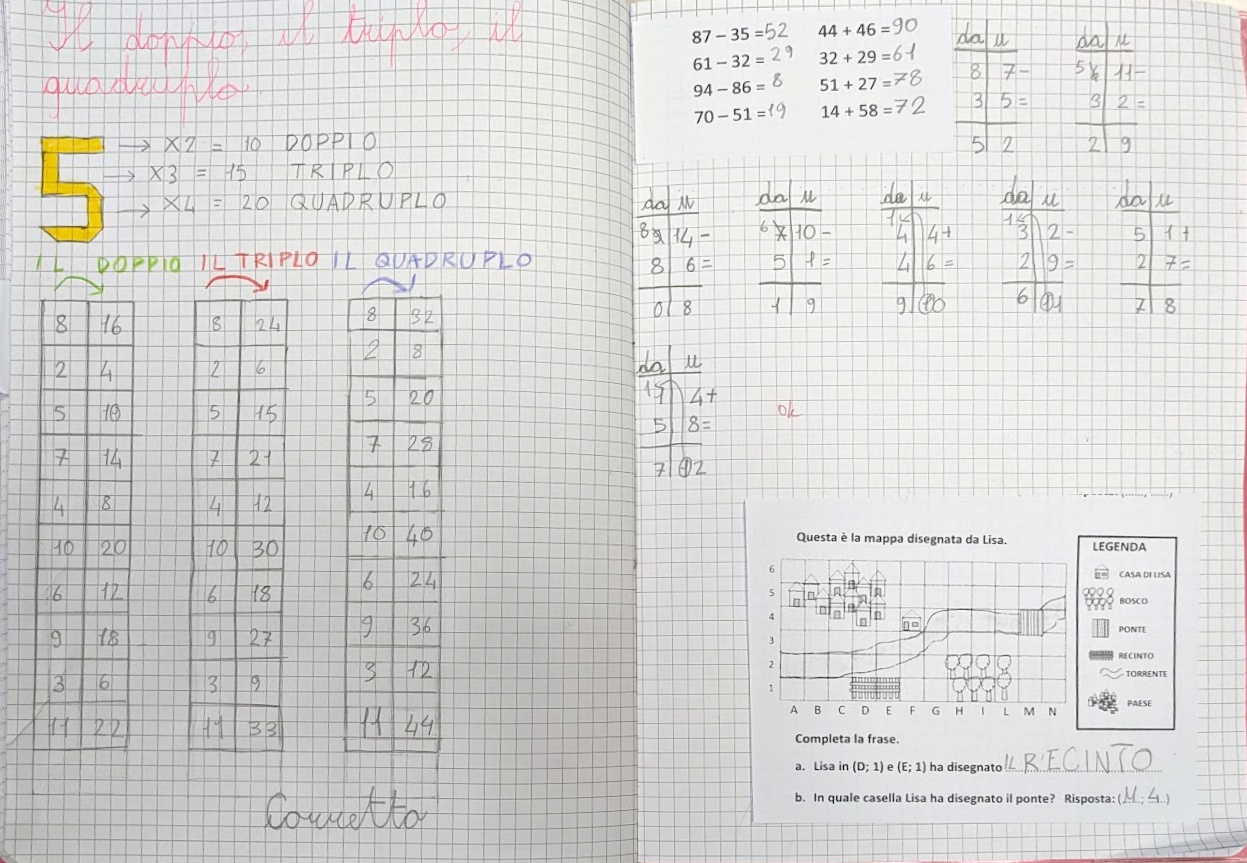 Il doppio, il triplo, il
quadruplo.
5
→ X2 = 10 DOPPIO
→ X3 = 15 TRIPLO
→ X4 = 20 QUADRUPLO
IL DOPPIO IL TRIPLO IL QUADRUPLO
8 16 8 24 8 32
2 4 2 6 2 8
5 10 5 15 5 20
7 14 7 21 7 28
4 8 4 12 4 16
10 20 10 30 10 40
6 12 6 18 6 24
9 18 9 27 9 36
3 6 3 9 3 12
11 22 11 33 11 44
Corretto
87 – 35 = 52 44 + 46 = 90
61 – 32 = 29 32 + 29 = 61
94 – 86 = 8 51 + 27 = 78
70 – 51 = 19 14 + 58 = 72
da u da u
8 7- 5 11-
3 5= 3 2=
5 2 2 9
da u da u da u da u da u
8 14- 6 10- 1 4 4+ 1 3 2- 5 1+
8 6= 5 1= 4 6= 2 9= 2 7=
0 8 1 9 9 10 6 11 7 8
da u
1 1 4+
5 8=
7 12
ok
Questa è la mappa disegnata da Lisa.
6
5
4
3
2
1
A B C D E F G H I L M N
LEGENDA
CASA DI LISA
BOSCO
PONTE
RECINTO
TORRENTE
PAESE
Completa la frase.
a. Lisa in (D; 1) e (E; 1) ha disegnato IL RECINTO
b. In quale casella Lisa ha disegnato il ponte? Risposta: (M; 4)